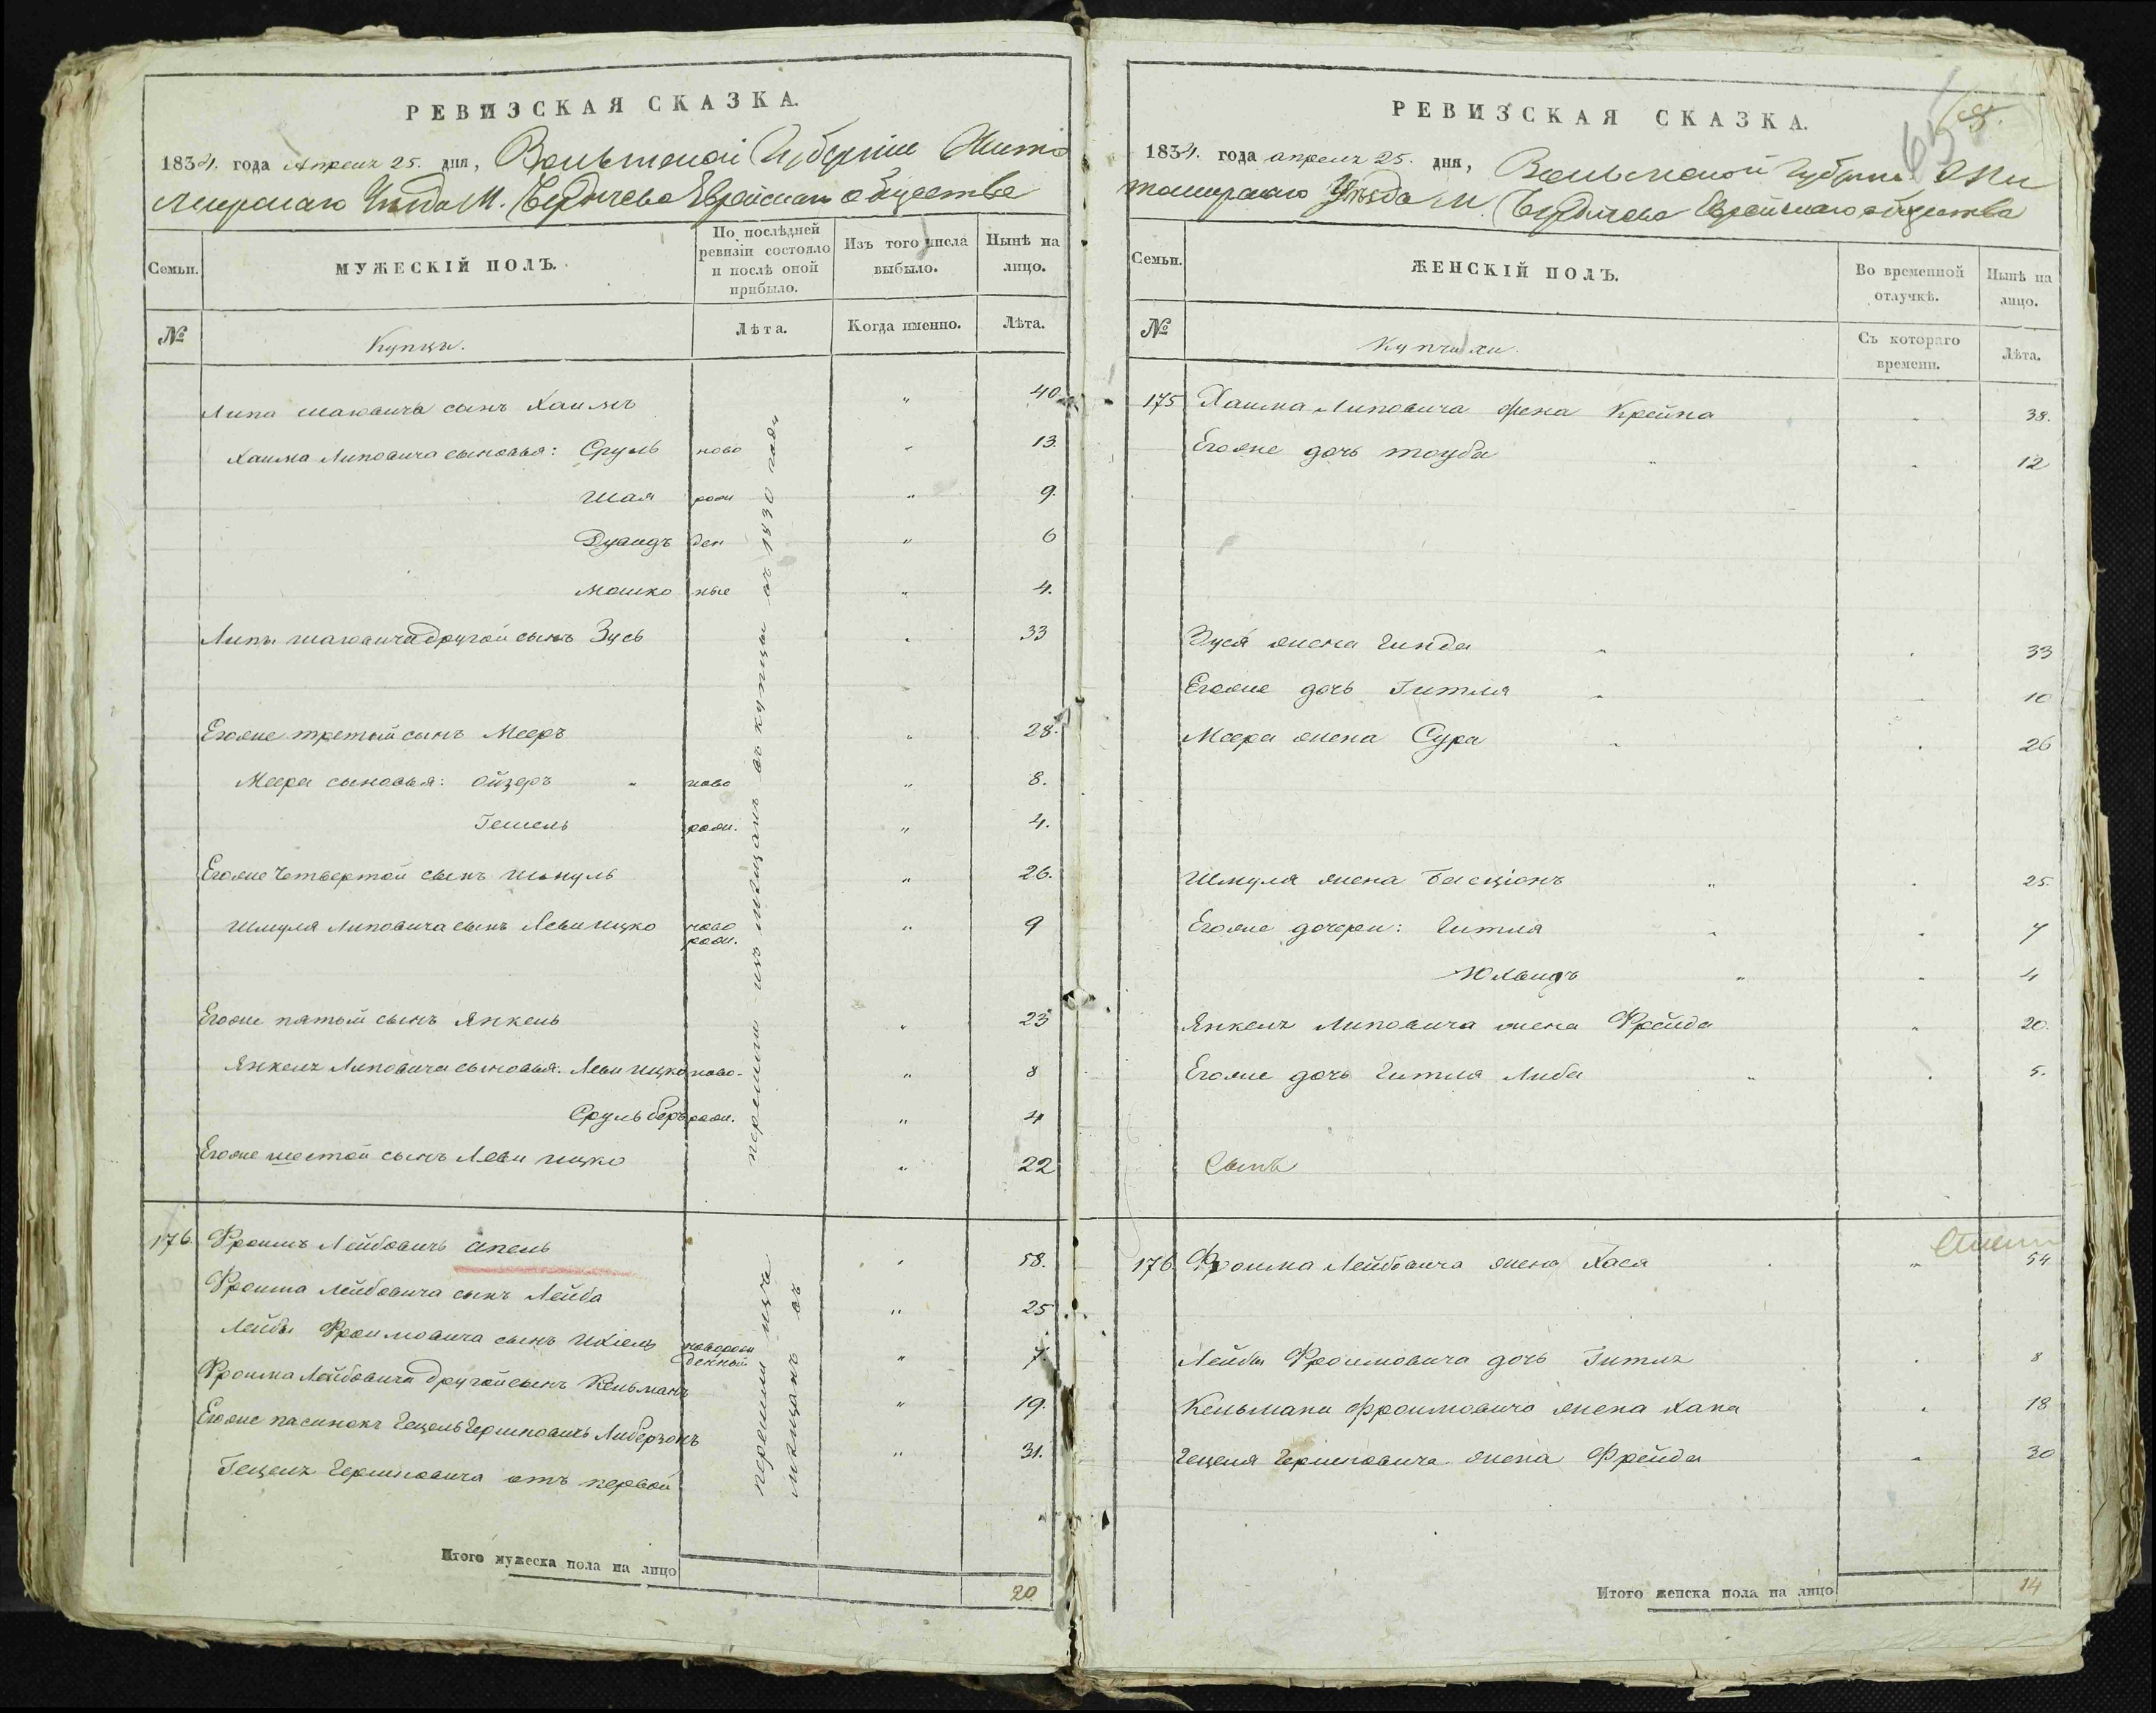 РЕВИЗСКАЯ СКАЗКА.
1834. года Апреля 25. дня, Волынской Губернии Жито
мирскаго Уезда М. Бердичева Еврейскаго общества
Семьи.
МУЖЕСКІЙ ПОЛЪ.
По послѣдней ревизіи состояло и послѣ оной прибыло.
Изъ того числа выбыло.
Нынѣ на лицо.
№
Купцы.
Лѣта.
Когда именно.
Лѣта.
Липа шаювича сынъ Хаимъ " 40
Хаима Липовича сыновья: Сруль ново " 13.
Шая рож " 9.
Дувидъ ден " 6
Мошко ные " 4.
Липы шаювича другой сынъ Зусь " 33
Егоже третый сынъ Мееръ " 28.
Меера сыновья: Ойзеръ " ново " 8.
Гешель рож. " 4.
Егоже Четвертой сынъ шмуль " 26.
Шмуля Липовича сынъ Леви ицко ново рож. " 9
Егоже пятый сынъ Янкель " 23
Янкеля Липовича сыновья: Леви ицко ново- " 8
Сруль беръ рож. " 4
Егоже шестой сынъ Леви ицко " 22
перешли изъ мещанъ въ купцы въ 1830 году
176. Фроимъ Лейбовичъ апель " 58.
Фроима Лейбовича сынъ Лейба " 25
Лейбы Фроимовича сынъ Ихіель новорож денный " 7.
Фроима Лейбовича другой сынъ Кельманъ " 19.
Егоже пасинокъ Гецель Гершковичъ Либерзонъ " 31.
Гецеля Гершковича отъ первой
перешли
мещанъ въ
Итого мужеска пола на лицо 20
РЕВИЗСКАЯ СКАЗКА.
1834. года апреля 25. дня, Волынской Губернии Жи
томирскаго Уезда М. Бердичева Еврейскаго общества
Семьи.
ЖЕНСКІЙ ПОЛЪ.
Во временной отлучкѣ.
Нынѣ на лицо.
№
Купчихи.
Съ котораго времени.
Лѣта.
175 Хаима Липовича жена Крейна " 38.
Егоже дочь тоуба " " 12
Зуся жена Гинда " " 33
Егоже дочь Гитля " " 10
Меера жена Сура " " 26
Шмуля жена Басціонъ " " 25.
Егоже дочери: Гитля " " 7
" " 4
Янкеля Липовича жена Фрейда " 20.
Егоже дочь Гитля Либа " " 5.
176. Фроима Лейбовича жена Хася " 54
Лейбы Фроимовича дочь Гитля " 8
Кельмана Фроимовича жена Хана " 18
Гецеля Гершковича жена Фрейда " 30
Итого женска пола на лицо 14